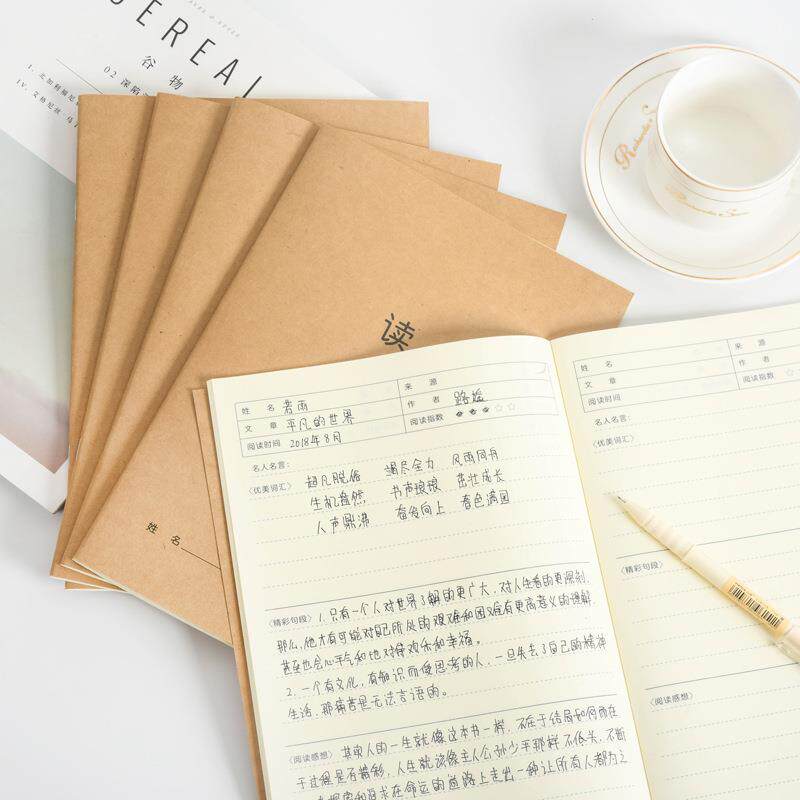 EREAL
谷 物
02 深陷
读
姓 名
姓 名 若雨
来 源
文 章 平凡的世界
作 者 路遥
阅读时间 2018年8月
阅读指数
名人名言：
〈优美词汇〉 超凡脱俗 竭尽全力 风雨同舟
生机盎然 书声琅琅 茁壮成长
人声鼎沸 奋发向上 春色满园
〈精彩句段〉 1.只有一个人对世界了解的更广大，对人生看的更深刻，
那么，他才有可能对自己所处的艰难和困难有更高意义的理解
甚至也会心平气和地对待欢乐和幸福。
2.一个有文化，有知识而使思考的人，一旦失去了自己的精神
生活，那痛苦是无法言语的。
〈阅读感想〉 其实人的一生就像这本书一样，不在于结局如何而在
于过程是否精彩，人生就该像主人公孙少平那样不低头，不断
在命运的道路上走出一种让所有人都为之
姓 名
来 源
文 章
作 者
阅读时间
阅读指数
名人名言：
〈优美词汇〉
〈精彩句段〉
〈阅读感想〉